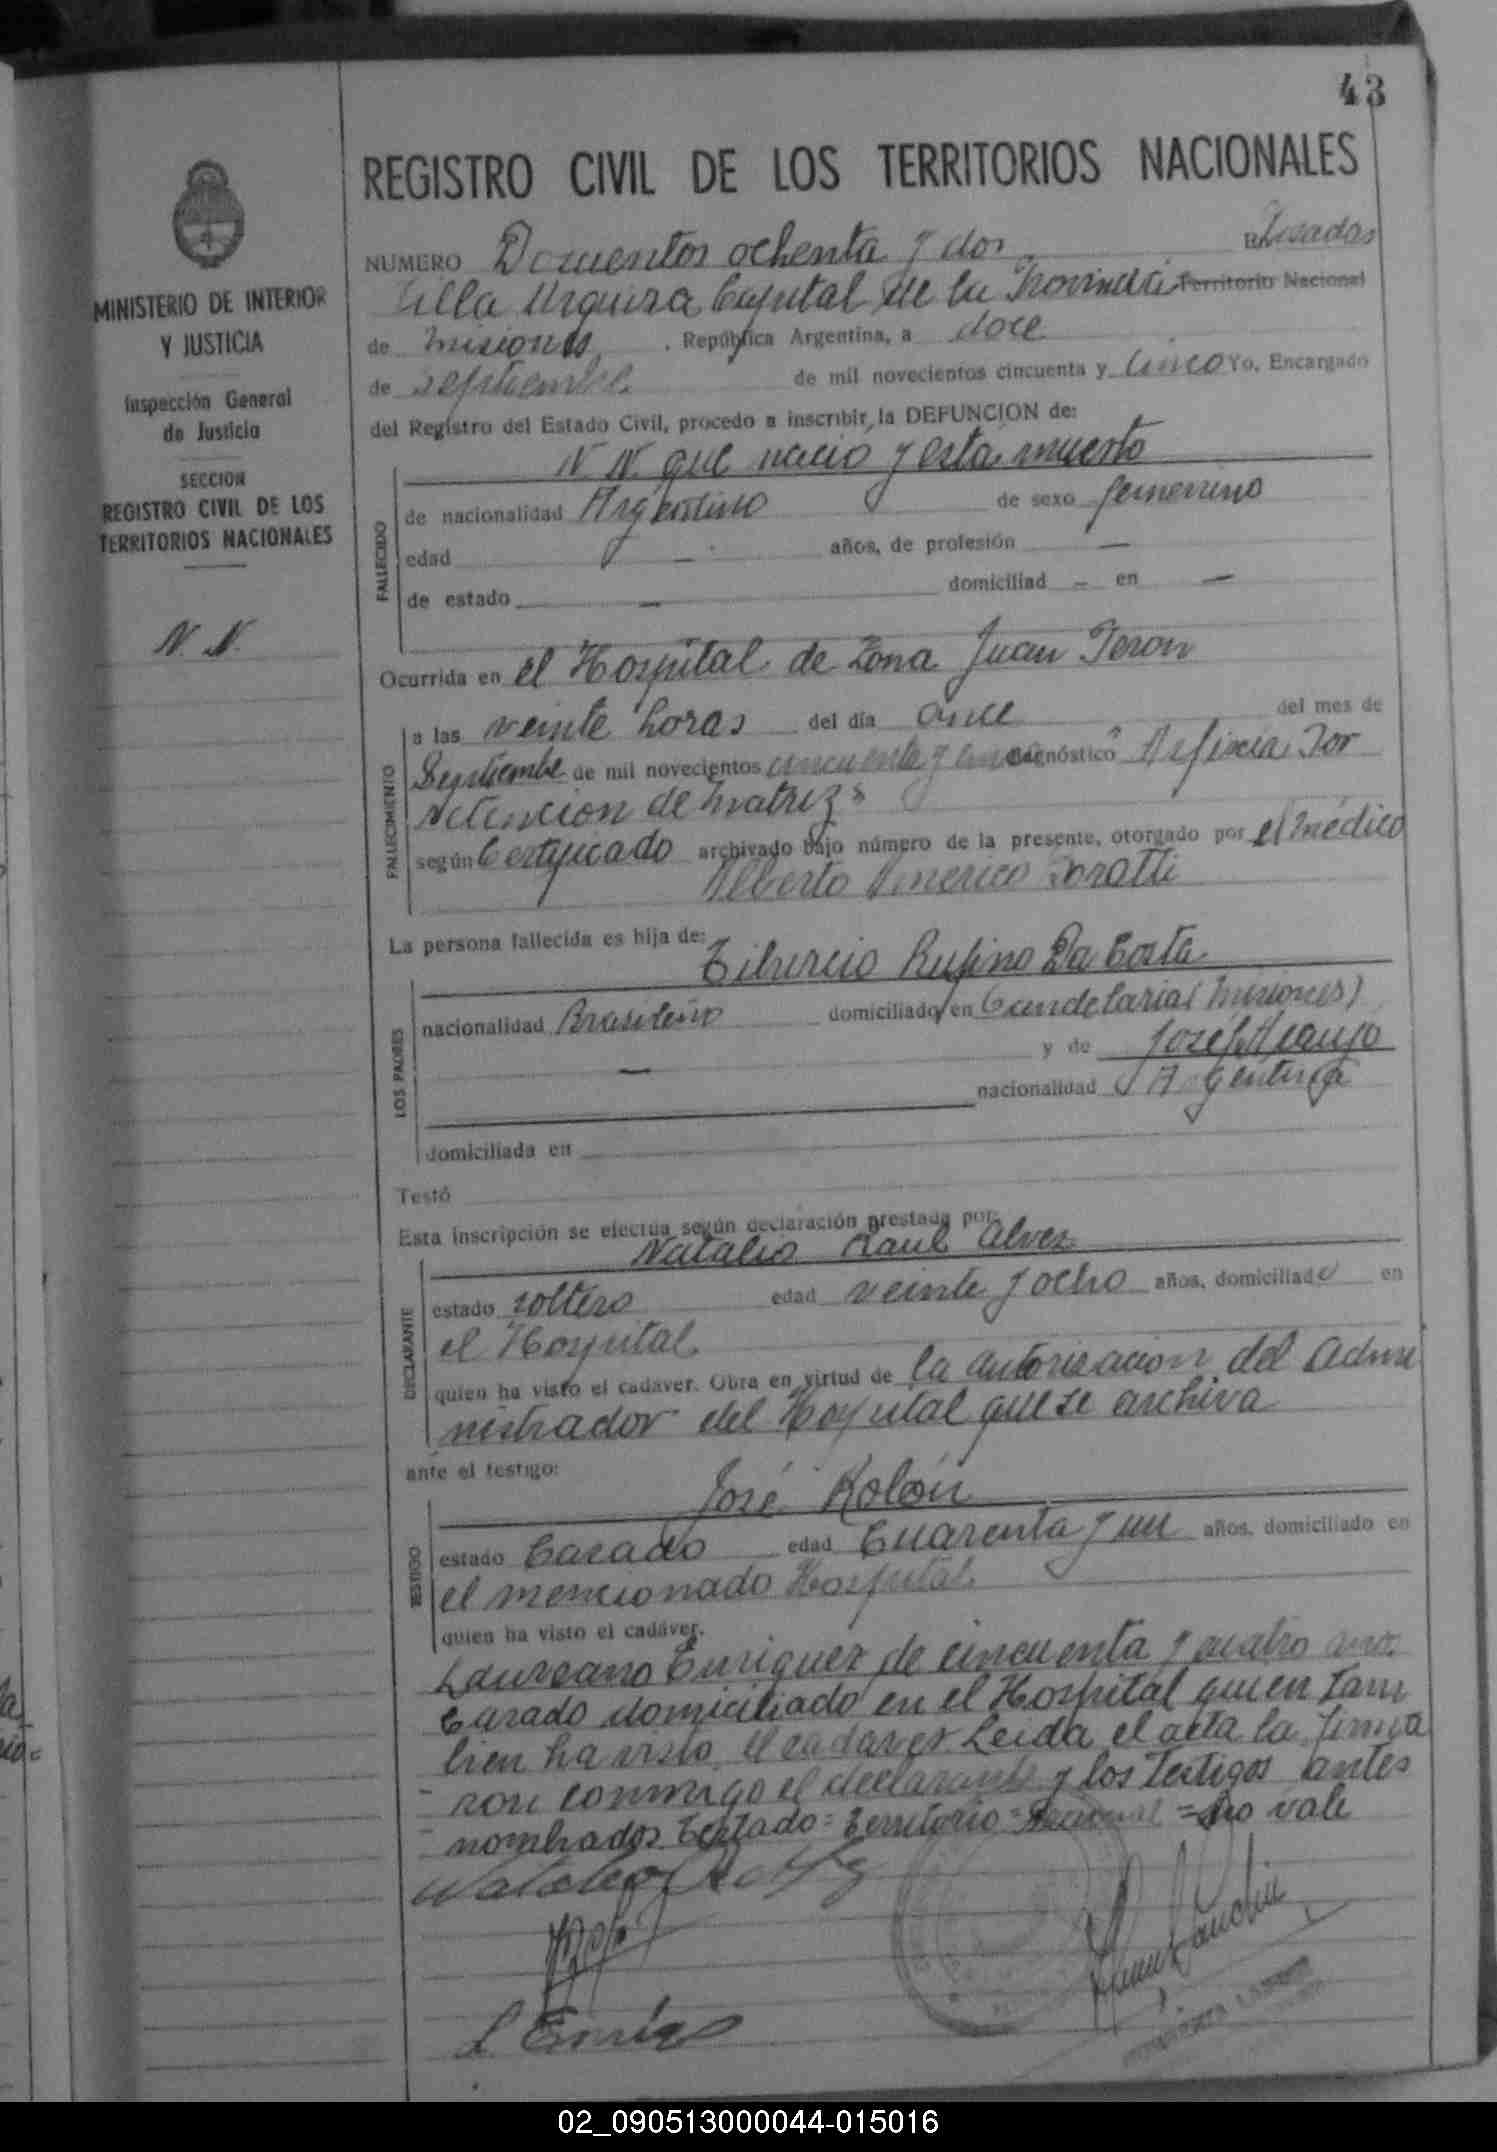 43
REGISTRO CIVIL DE LOS TERRITORIOS NACIONALES
MINISTERIO DE INTERIOR
Y JUSTICIA
Inspección General
de Justicia
SECCION
REGISTRO CIVIL DE LOS
TERRITORIOS NACIONALES
N. N.
NUMERO Doscientos ochenta y dos
Villa Urquiza Capital de la Provincia Territorio Nacional
de Misiones, República Argentina, a doce
de septiembre de mil novecientos cincuenta y cinco Yo, Encargado
del Registro del Estado Civil, procedo a inscribir la DEFUNCION de:
N N que nacio y esta muerto
FALLECIDO
de nacionalidad Argentino de sexo femenino
edad — años, de profesión —
de estado — domiciliad - en —
Ocurrida en el Hospital de Zona Juan Peron
FALLECIMIENTO
a las veinte horas del día once del mes de
Septiembre de mil novecientos cincuenta y cinco diagnóstico Asfixia Por
retencion de matriz
según Certificado archivado bajo número de la presente, otorgado por el médico
Alberto Americo
La persona fallecida es hija de:
Tiburcio Rufino Da Costa
LOS PADRES
nacionalidad Brasileño domiciliado en Candelaria (Misiones)
— y de Josefa Araujo
nacionalidad Argentina
domiciliada en
Testó
Esta inscripción se efectúa según declaración prestada por:
Natalio Raul Alvez
DECLARANTE
estado soltero edad veinte y ocho años, domiciliado en
el Hospital
quien ha visto el cadáver. Obra en virtud de la autorizacion del Admi
nistrador del Hospital que se archiva
ante el testigo:
José Rolón
TESTIGO
estado Casado edad Cuarenta y un años, domiciliado en
el mencionado Hospital
quien ha visto el cadáver.
Laureano Enriquez de cincuenta y cuatro años
Casado domiciliado en el Hospital quien tam
bien ha visto el cadaver Leida el acta la firma
ron conmigo el declarante y los testigos antes
nombrados Testado = Territorio = Nacional = No vale
L Enriq
02_090513000044-015016